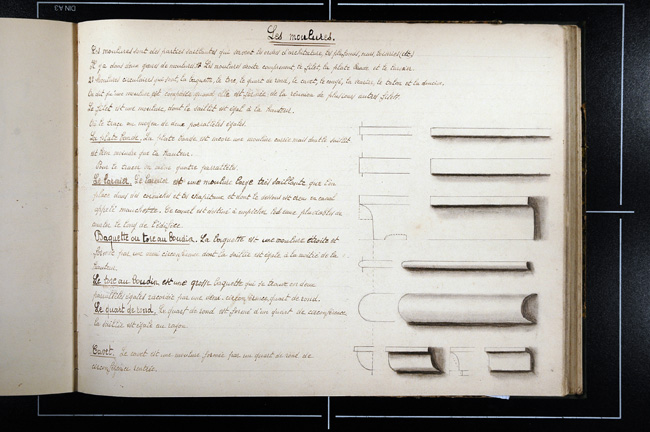 DIN A3
Les moulures.
Les moulures sont des parties saillantes qui servent les ordres d'architecture, les plafonds, murs, boiseries, etc.
Il y a deux genres de moulures. 1º Les moulures droites comprennent, le filet, la plate bande et le larmier.
2º Moulures circulaires qui sont, la baguette, le tore, le quart de rond, le cavet, le congé, la scotie, le talon et la doucine.
On dit qu'une moulure est composée quand elle est formée de la réunion de plusieurs autres filets.
Le filet est une moulure, dont la saillie est égal à la hauteur.
On le trace au moyen de deux parallèles égales.
La plate bande. La plate bande est encore une moulure carrée mais dont la saillie
est bien moindre que la hauteur.
Pour la tracer on mène quatre parallèles.
Le larmier. Le larmier est une moulure large très saillante que l'on
place dans les corniches et les chapiteaux et dont le dessous est creusé en canal
appelé mouchette. Ce canal est destiné à empêcher les eaux pluviales de
couler le long de l'édifice.
Baguette ou tore au Boudin. La baguette est une moulure étroite et
formée par une demi circonférence dont la saillie est égale à la moitié de la
hauteur.
Le tore au Boudin, est une grosse baguette qui se trace en deux
parallèles égales raccordé par une demi-circonférence, quart de rond.
Le quart de rond. Le quart de rond est formé d'un quart de circonférence
la saillie est égale au rayon.
Cavet. Le cavet est une moulure formée par un quart de rond de
circonférence rentrée.